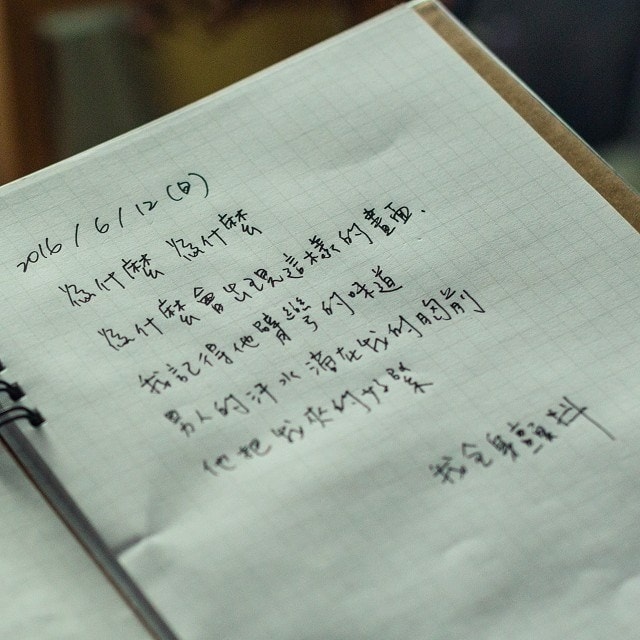 2016/6/12(日)
為什麼 為什麼
為什麼會出現這樣的畫面.
我記得他臂彎的味道
男人的汗水滴在我的胸前
他把我求的好緊
我全身顫抖